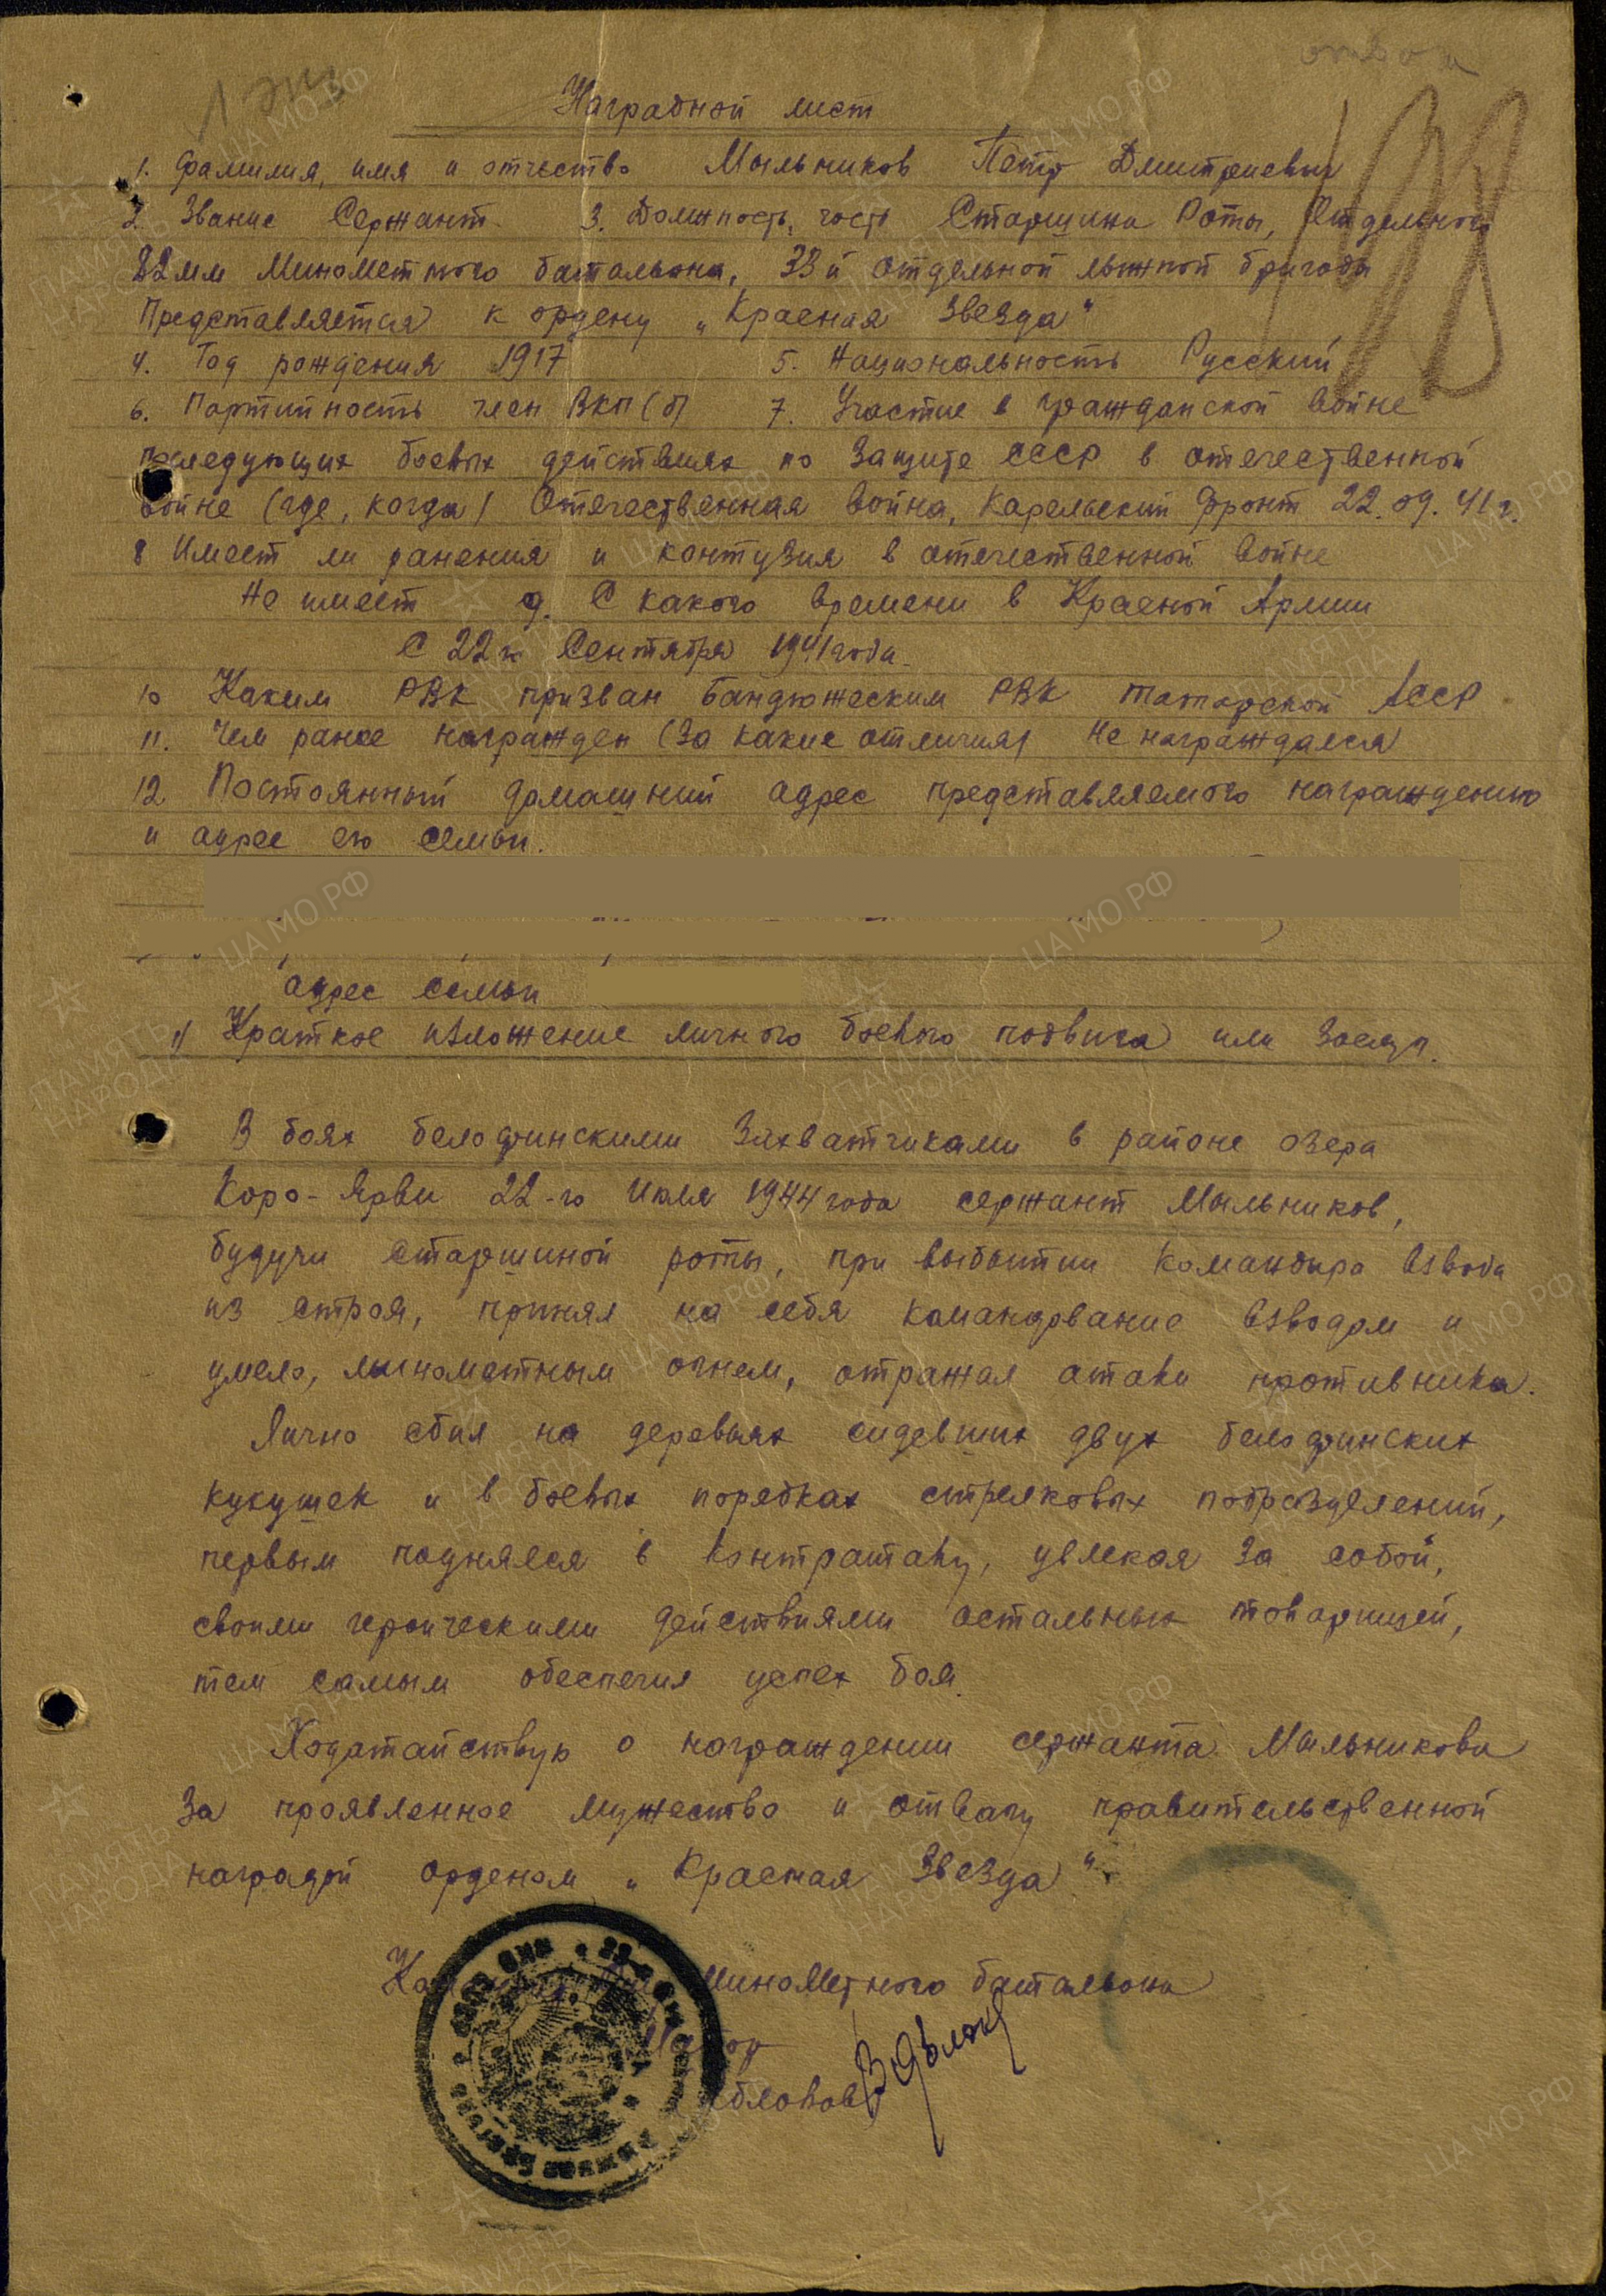 Наградной лист
1. Фамилия, имя и отчество Мыльников Петр Дмитриевич
2. Звание Сержант. 3. Должность, часть Старшина Роты, Отдельного
82 мм Минометного батальона, 33й отдельной лыжной бригады
Представляется к ордену „Красная Звезда"
4. Год рождения 1917 5. Национальность Русский
6. Партийность член ВКП(б) 7. Участие в гражданской войне
последующих боевых действиях по защите СССР в отечественной
войне (где, когда) Отечественная война, Карельский Фронт 22.09.41г.
8 Имеет ли ранения и контузия в отечественной войне
Не имеет 9. С какого времени в Красной Армии
С 22го Сентября 1941 года.
10 Каким РВК призван Бандюжским РВК Татарской АССР
11. Чем ранее награжден (за какие отличия) Не награждался
12. Постоянный домашний адрес представляемого награждению
и адрес его семьи.
адрес семьи
1) Краткое изложение личного боевого подвига или заслуг.
В боях белофинскими захватчиками в районе озера
Коро-Ярви 22-го Июля 1944 года сержант Мыльников,
будучи старшиной роты, при выбытии командира взвода
из строя, принял на себя командование взводом и
умело, минометным огнем, отражал атаки противника.
Лично сбил на деревьях сидевших двух белофинских
кукушек и в боевых порядках стрелковых подразделений,
первым поднялся в контратаку, увлекая за собой,
своими героическими действиями остальных товарищей,
тем самым обеспечил успех боя.
Ходатайствую о награждении сержанта Мыльникова
за проявленное мужество и отвагу правительственной
наградой орденом „Красная Звезда".
минометного батальона
Майор
ПАМЯТЬ НАРОДА
ЦА МО РФ